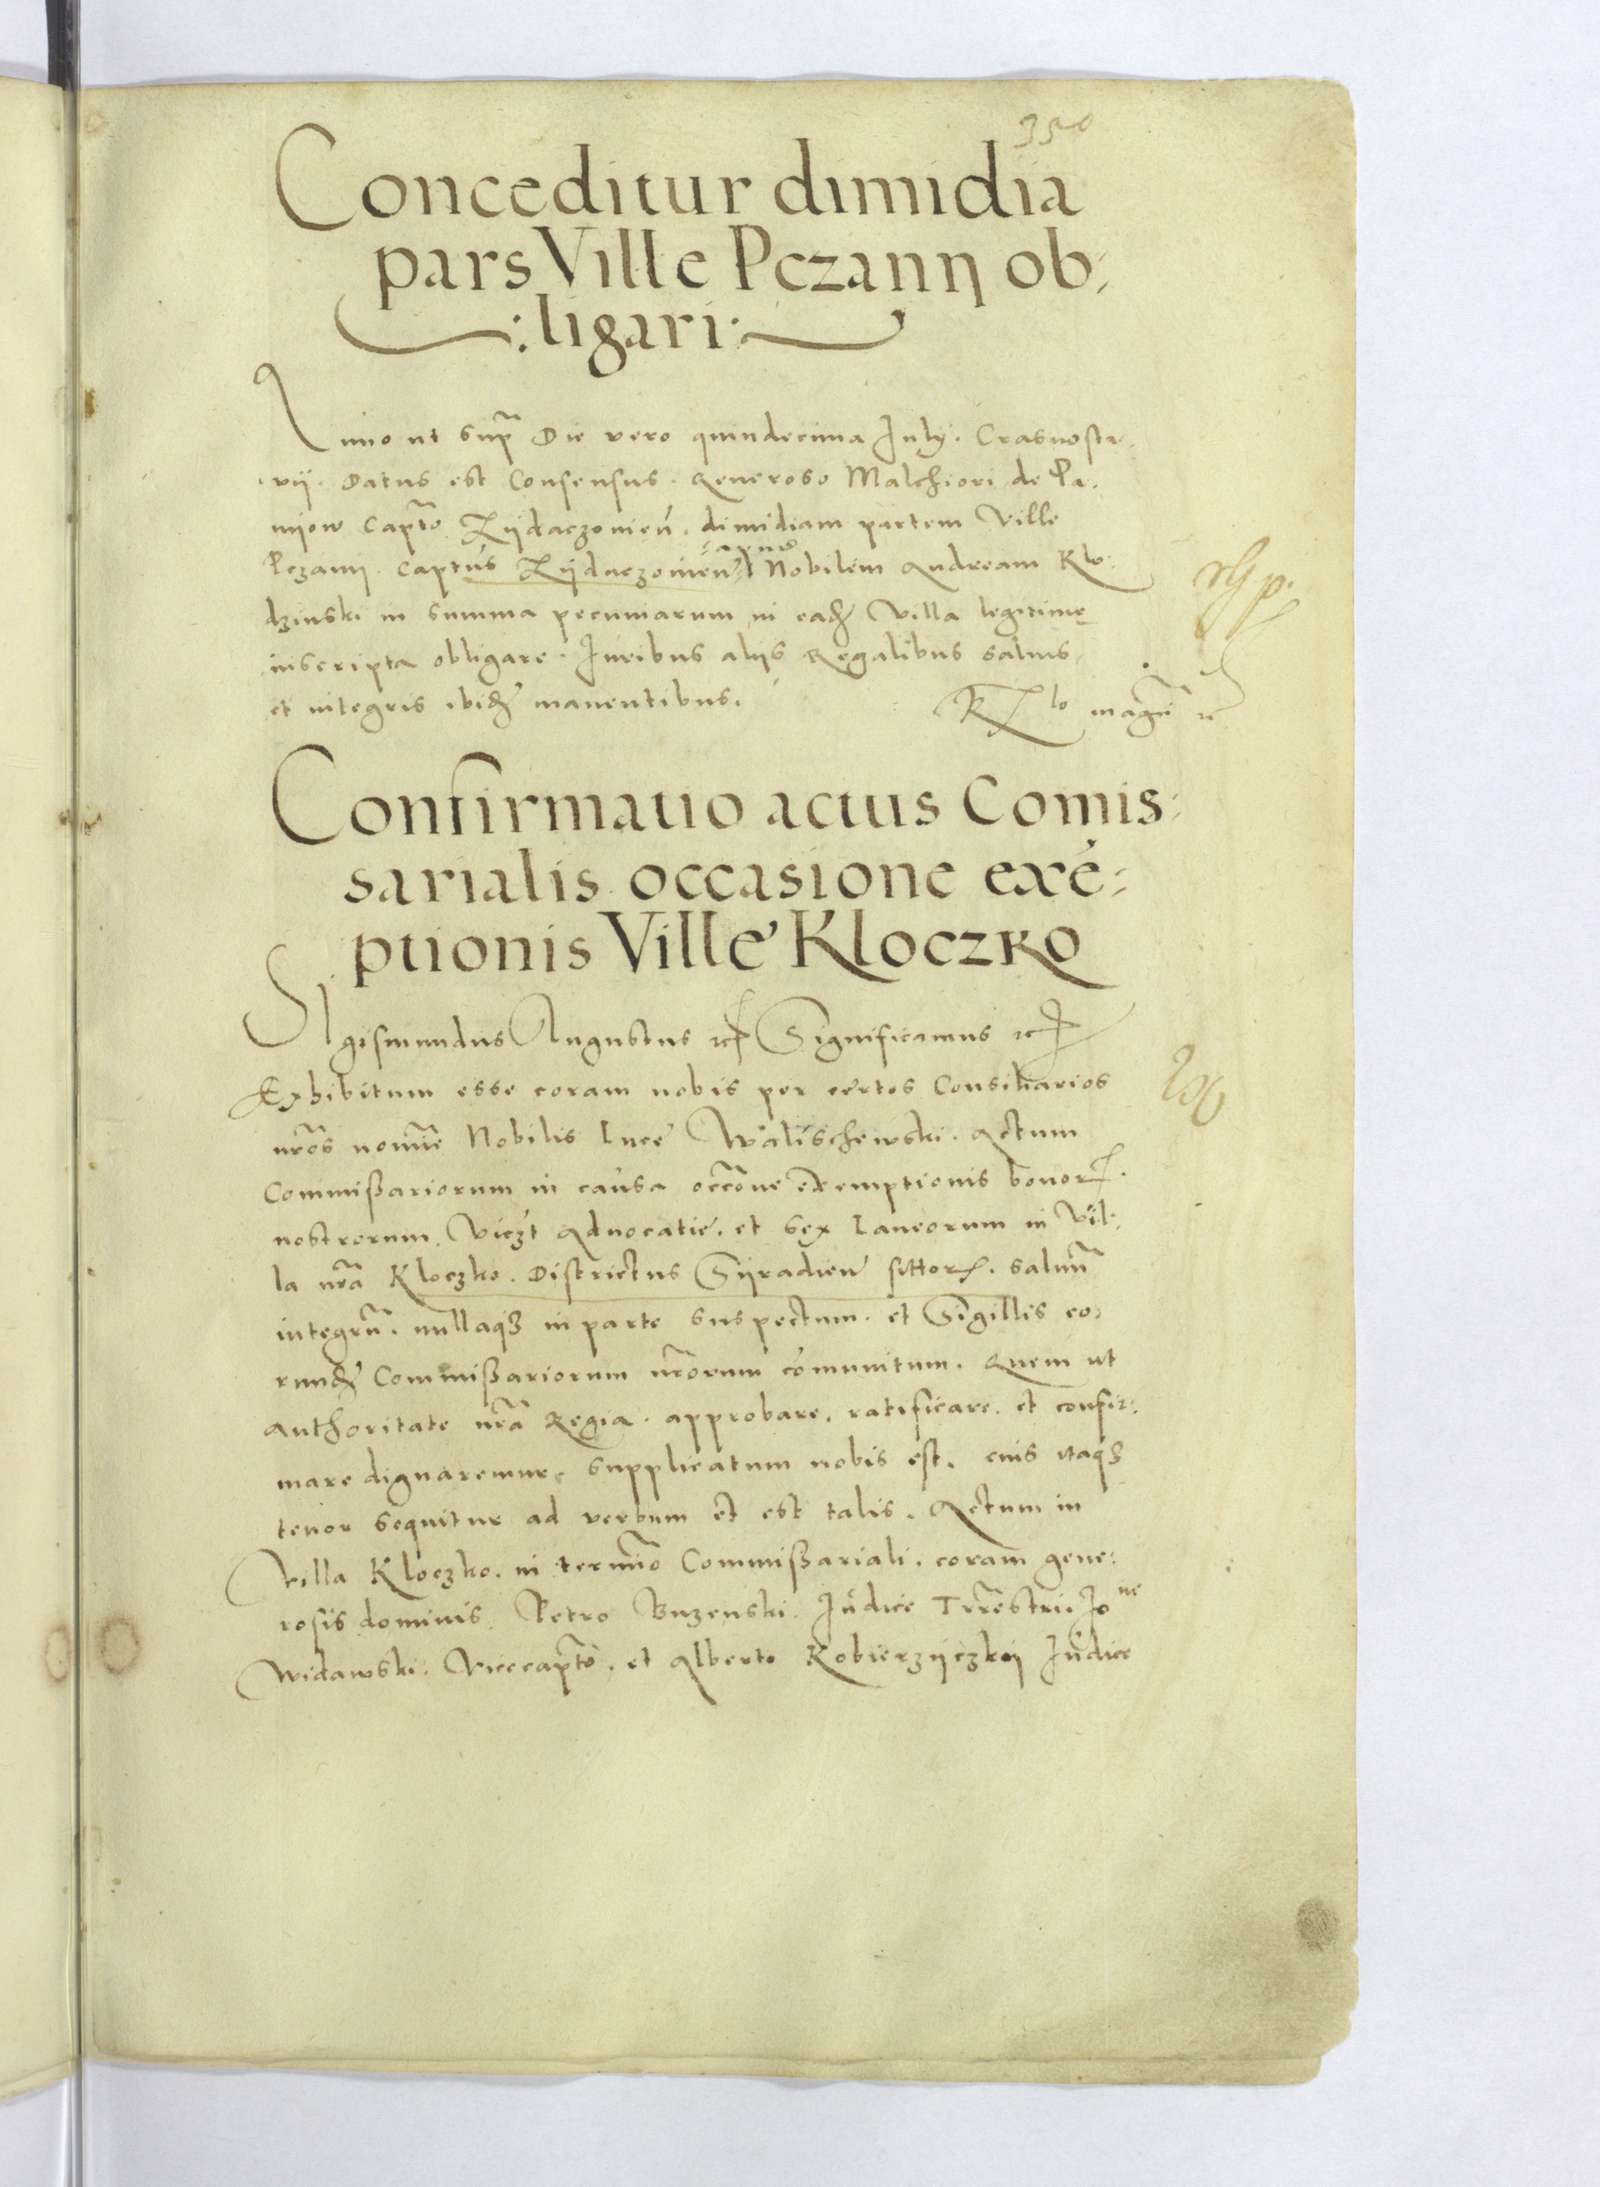 350
Conceditur dimidia
pars Ville Pczanij ob-
:ligari:
Anno ut supr Die vero quindecima Julij. Crasnosta-
vij. Datus est Consensus. Generoso Malchiori de Pa-
nijow Captō Zijdaczovien̄. dimidiam partem Ville
Pczanij. Captus Zijdaczovien̄ Nobilem Andream Klo-
dzinski in summa pecuniarum in eadē villa legitime
inscripta obligare. Juribus alijs Regalibus salvis
et integris ibidē manentibus.
Confirmatio actus Comis-
sarialis occasione exē-
ptionis Ville Kloczko
SIgismundus Augustus etc Significamus etc
Exhibitum esse coram nobis per certos Consiliarios
nr̄os nom̄ie Nobilis Luce Walischewski. Actum
Commißariorum in causa occ̄one exemptionis bonorꝝ.
nostrorum. Viczt Advocatie. et sex Laneorum in Vil-
la nr̄a Kloczko. Districtus Sijradien̄ sittorꝝ. salvum̄
integrū. nullaqꝫ in parte suspectum. et Sigillis eo-
rundē Commißariorum nr̄orum cōmunitum. Quem ut
authoritate nr̄a Regia. approbare. ratificare. et confir-
mare dignaremur. supplicatum nobis est. cuis itaqꝫ
tenor sequitur ad verbum et est talis. Actum in
Villa Kloczko. in term̄io Commißariali. coram gene-
rosis dominis. Petro Buzenski. Judice Tr̄restri. Jo ne
Widawski. Vicecaptō. et Alberto Kobierzijczkij Judice